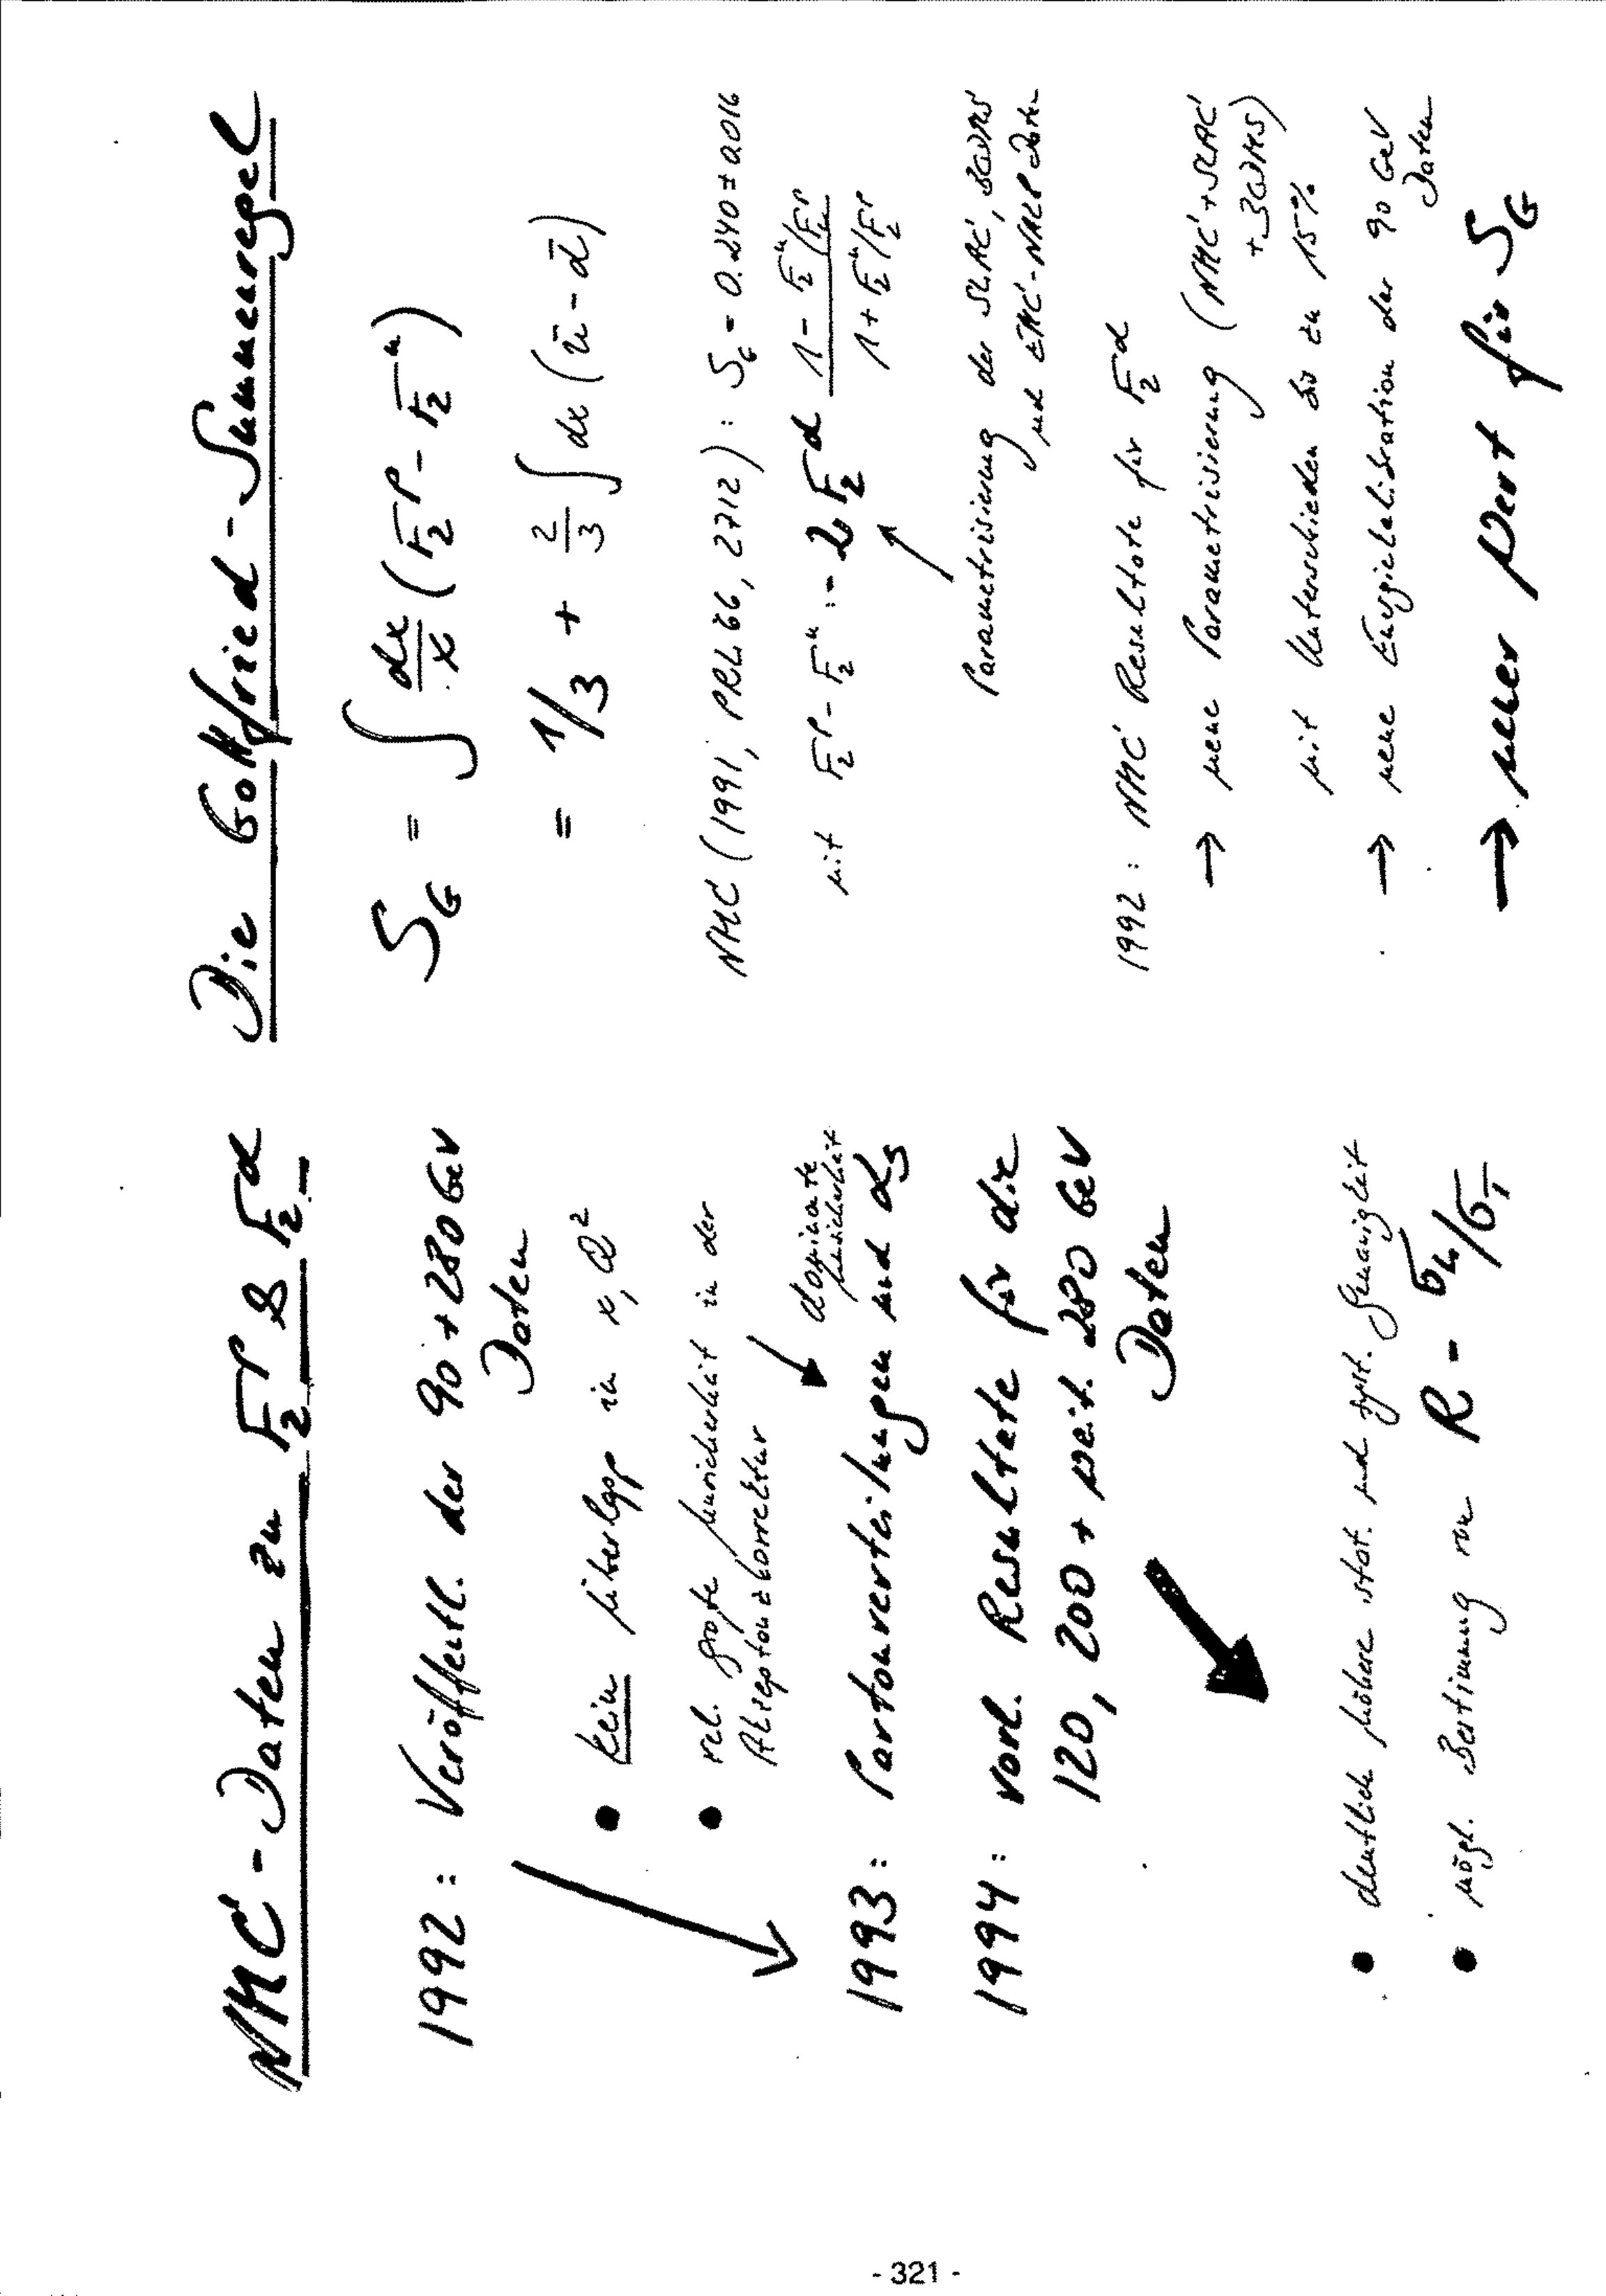 NMC-Daten zu F₂ᵖ & F₂ᵈ
1992: Veröffentl. der 90 + 280 GeV
Daten
• kein überlapp in x, Q²
• rel. große Unsicherheit in der
Akzeptanzkorrektur
dominante
Unsicherheit
1993: Partonverteilungen und αs
1994: vorl. Resultate für die
120, 200 + weit. 280 GeV
Daten
• deutlich höhere stat. und syst. Genauigkeit
• mögl. Bestimmung von R = σL/σT
Die Gottfried-Summenregel
S_G = ∫ dx/x (F₂ᵖ - F₂ⁿ)
= 1/3 + 2/3 ∫ dx (ū - d̄)
NMC (1991, PRL 66, 2712): S_G = 0.240 ± 0.016
mit F₂ᵖ - F₂ⁿ = 2 F₂ᵈ (1 - F₂ⁿ/F₂ᵖ)/(1 + F₂ⁿ/F₂ᵖ)
Parametrisierung der SLAC, BCDMS
und EMC-NA28 Daten
1992: NMC Resultate für F₂ᵈ
→ neue Parametrisierung (NMC + SLAC
+ BCDMS)
mit Unterschieden bis zu 15%
→ neue Energiekalibration der 90 GeV
Daten
→ neuer Wert für S_G
- 321 -